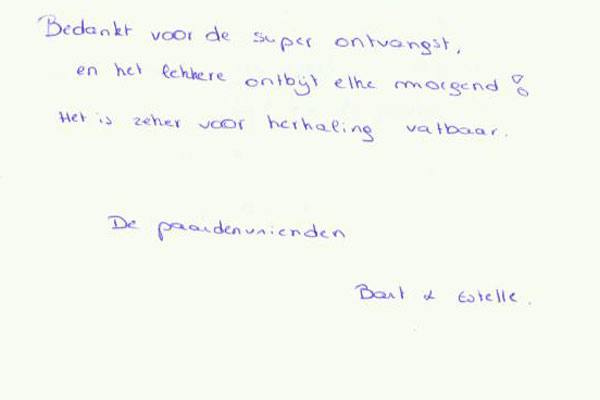 Bedankt voor de super ontvangst,
en het lekkere ontbijt elke morgend !
Het is zeker voor herhaling vatbaar.
De paardenvrienden
Bart & Estelle.